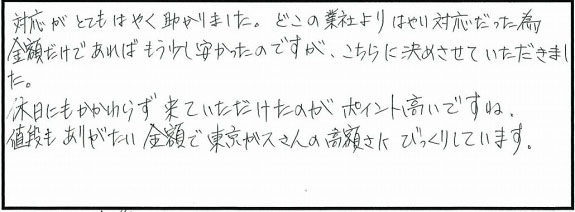 対応がとてもはやく助かりました。どこの業社よりはやい対応だった為
金額だけであればもう少し安かったのですが、こちらに決めさせていただきまし
た。
休日にもかかわらず来ていただけたのがポイント高いですね、
値段もありがたい金額で東京ガスさんの高額さにびっくりしています。